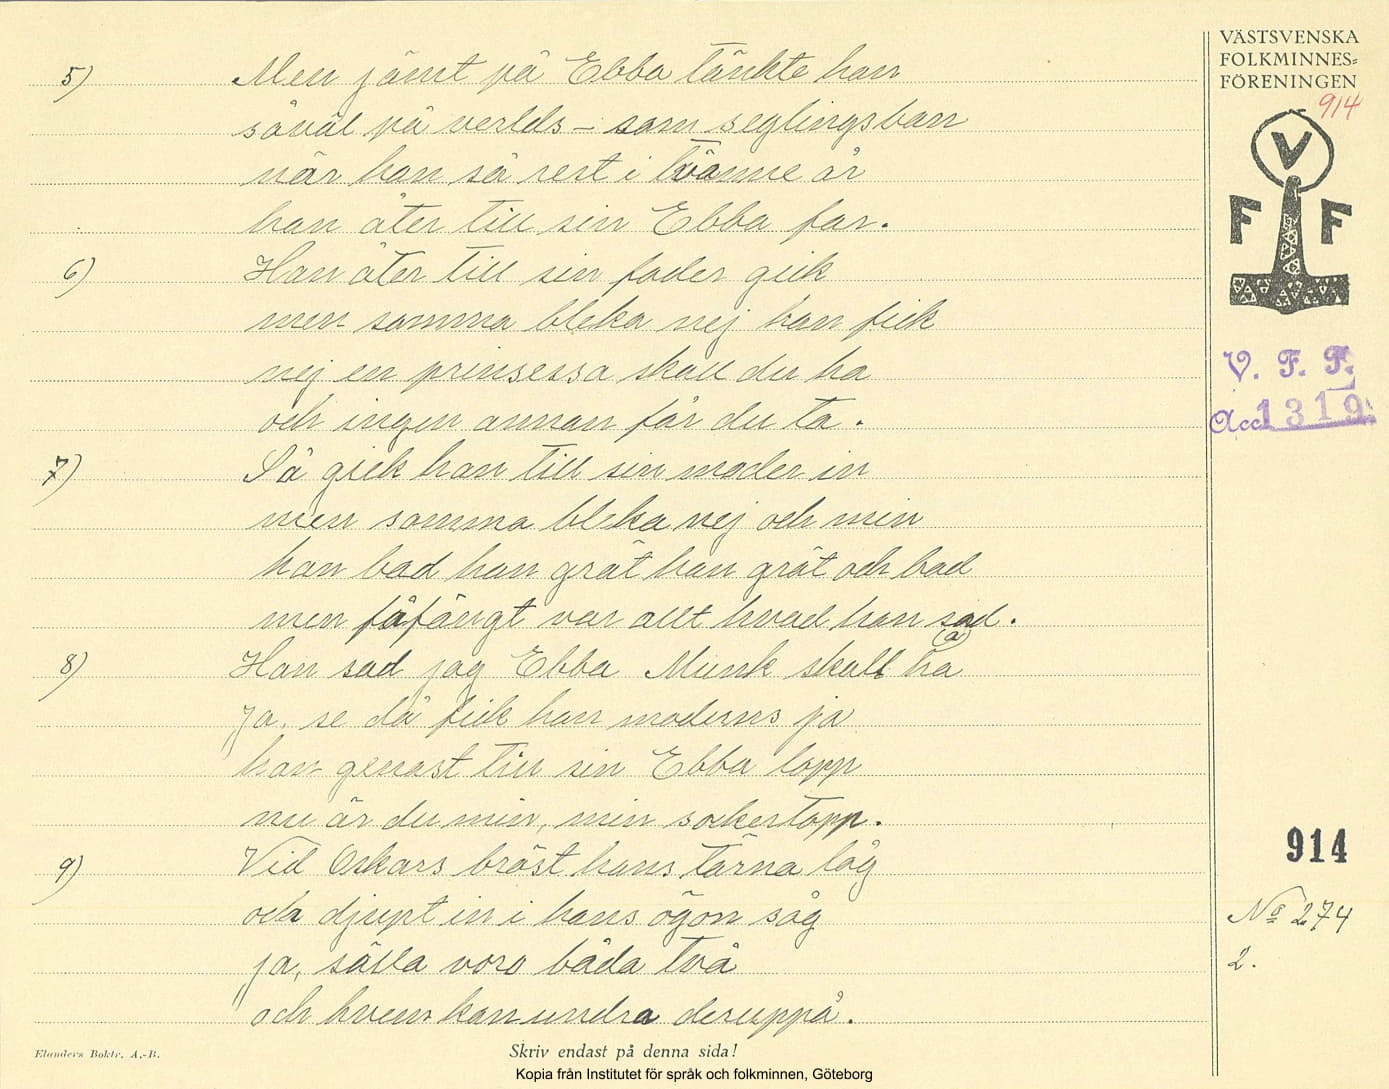 VÄSTSVENSKA
FOLKMINNES=
FÖRENINGEN
914
V
F F
V. F. F.
Acc 1319
5) Men jämt på Ebba tänkte han
såväl på verlds- som seglingsban
när han så rest i tvänne år
han åter till sin Ebba far.
6) Han åter till sin fader gick
men samma bleka nej han fick
nej en prinsessa skall du ha
och ingen annan får du ta.
7) Så gick han till sin moder in
men samma bleka nej och min
han bad han grät han grät och bad
men fåfängt var allt hvad han sad.
8) Han sad jag Ebba Munk skall ha
(a)
Ja, se då fick han moderns ja
han genast till sin Ebba lopp
nu är du min, min sockertopp.
9) Vid Oskars bröst hans tärna låg
och djupt in i hans ögon såg
ja, sälla voro båda två
och hvem kan undra deruppå.
914
No 274
2.
Elanders Boktr. A.-B.
Skriv endast på denna sida!
Kopia från Institutet för språk och folkminnen, Göteborg